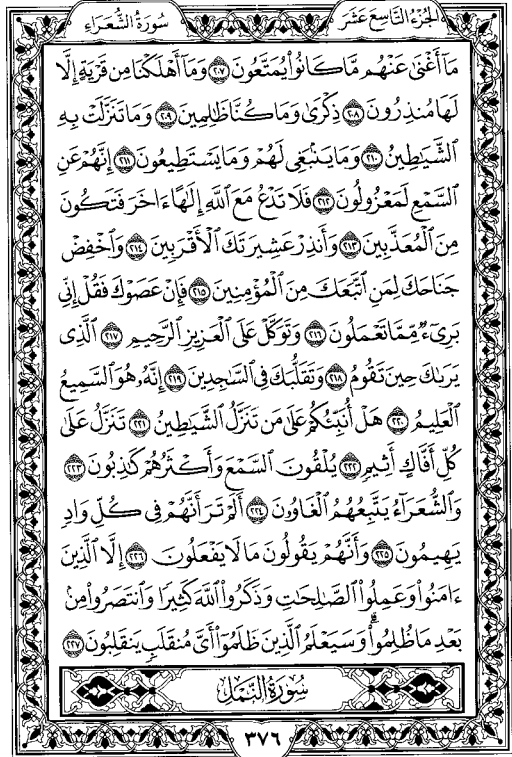 الجزء التاسع عشر
سورة الشعراء
مَآ أَغْنَىٰ عَنْهُم مَّا كَانُوا۟ يُمَتَّعُونَ ٢٠٧ وَمَآ أَهْلَكْنَا مِن قَرْيَةٍ إِلَّا
لَهَا مُنذِرُونَ ٢٠٨ ذِكْرَىٰ وَمَا كُنَّا ظَٰلِمِينَ ٢٠٩ وَمَا تَنَزَّلَتْ بِهِ
ٱلشَّيَٰطِينُ ٢١٠ وَمَا يَنۢبَغِى لَهُمْ وَمَا يَسْتَطِيعُونَ ٢١١ إِنَّهُمْ عَنِ
ٱلسَّمْعِ لَمَعْزُولُونَ ٢١٢ فَلَا تَدْعُ مَعَ ٱللَّهِ إِلَٰهًا ءَاخَرَ فَتَكُونَ
مِنَ ٱلْمُعَذَّبِينَ ٢١٣ وَأَنذِرْ عَشِيرَتَكَ ٱلْأَقْرَبِينَ ٢١٤ وَٱخْفِضْ
جَنَاحَكَ لِمَنِ ٱتَّبَعَكَ مِنَ ٱلْمُؤْمِنِينَ ٢١٥ فَإِنْ عَصَوْكَ فَقُلْ إِنِّى
بَرِىٓءٌ مِّمَّا تَعْمَلُونَ ٢١٦ وَتَوَكَّلْ عَلَى ٱلْعَزِيزِ ٱلرَّحِيمِ ٢١٧ ٱلَّذِى
يَرَىٰكَ حِينَ تَقُومُ ٢١٨ وَتَقَلُّبَكَ فِى ٱلسَّٰجِدِينَ ٢١٩ إِنَّهُۥ هُوَ ٱلسَّمِيعُ
ٱلْعَلِيمُ ٢٢٠ هَلْ أُنَبِّئُكُمْ عَلَىٰ مَن تَنَزَّلُ ٱلشَّيَٰطِينُ ٢٢١ تَنَزَّلُ عَلَىٰ
كُلِّ أَفَّاكٍ أَثِيمٍ ٢٢٢ يُلْقُونَ ٱلسَّمْعَ وَأَكْثَرُهُمْ كَٰذِبُونَ ٢٢٣
وَٱلشُّعَرَآءُ يَتَّبِعُهُمُ ٱلْغَاوُۥنَ ٢٢٤ أَلَمْ تَرَ أَنَّهُمْ فِى كُلِّ وَادٍ
يَهِيمُونَ ٢٢٥ وَأَنَّهُمْ يَقُولُونَ مَا لَا يَفْعَلُونَ ٢٢٦ إِلَّا ٱلَّذِينَ
ءَامَنُوا۟ وَعَمِلُوا۟ ٱلصَّٰلِحَٰتِ وَذَكَرُوا۟ ٱللَّهَ كَثِيرًا وَٱنتَصَرُوا۟ مِنۢ
بَعْدِ مَا ظُلِمُوا۟ ۗ وَسَيَعْلَمُ ٱلَّذِينَ ظَلَمُوٓا۟ أَىَّ مُنقَلَبٍ يَنقَلِبُونَ ٢٢٧
سورة النمل
٣٧٦